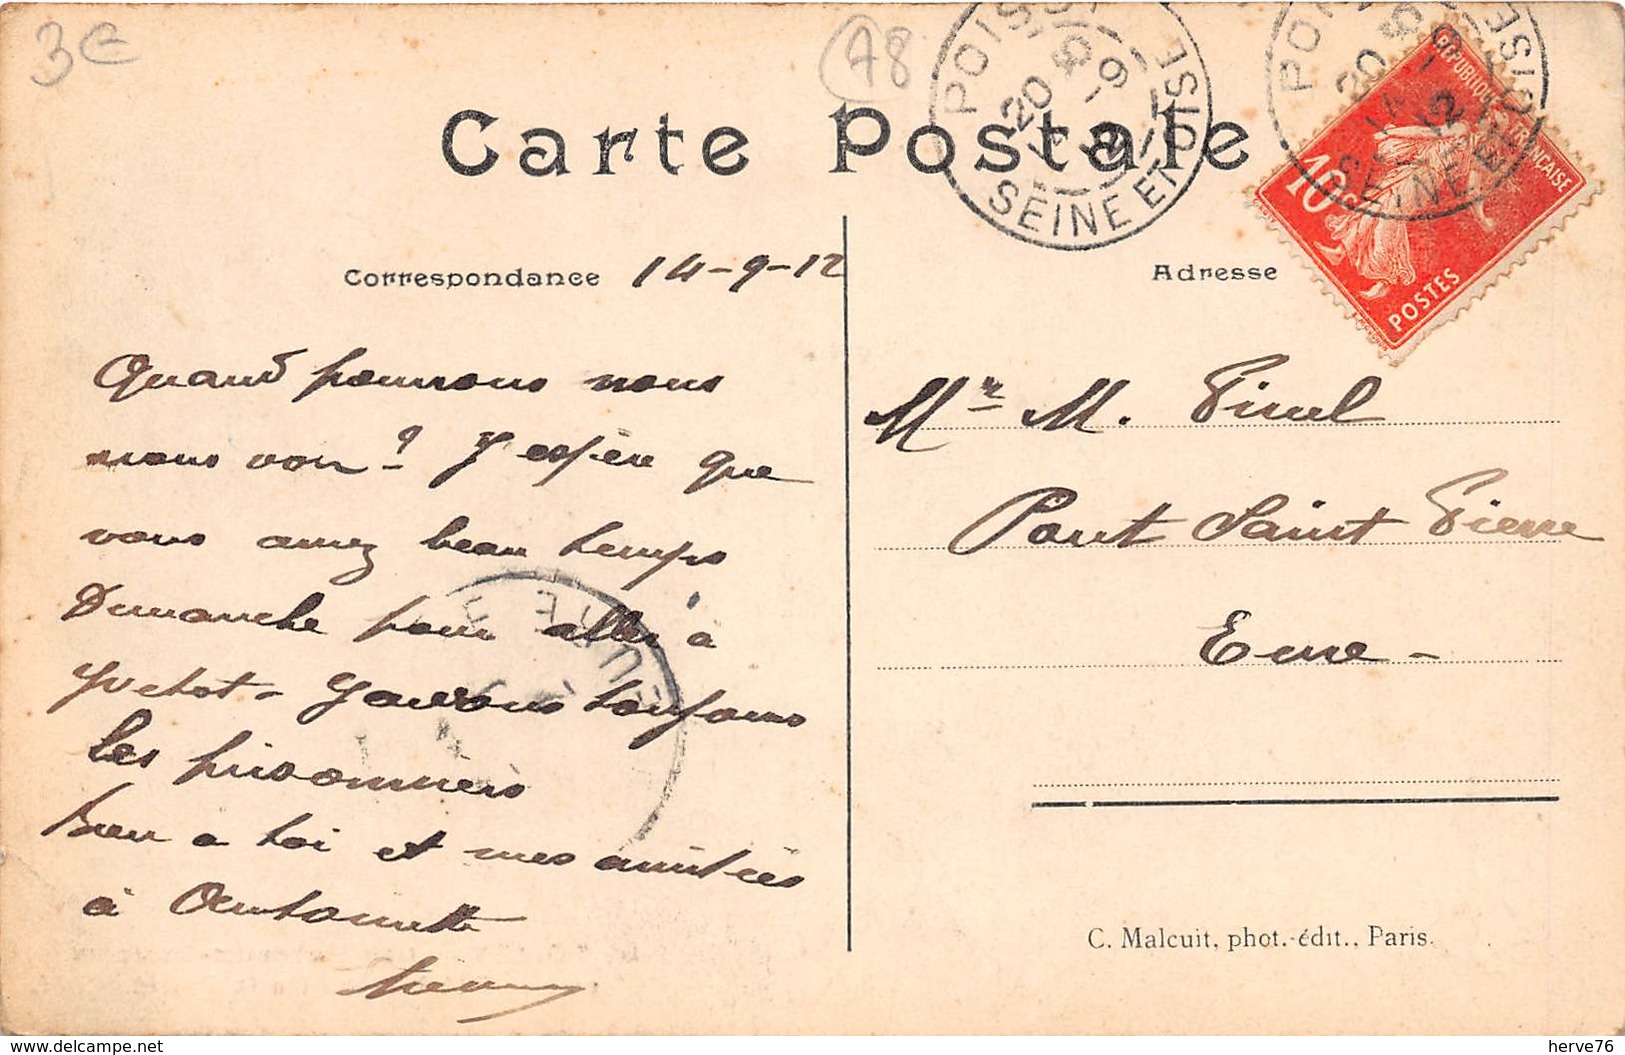 3€
A8
Carte Postale
POISSY
20 50
14 - 9
12
SEINE ET OISE
POISSY
20 50
14 - 9
12
SEINE ET OISE
RÉPUBLIQUE FRANÇAISE
10c
POSTES
Correspondance 14-9-12
Quand pourrons nous
nous voir ? J'espère que
vous aurez beau temps
Dimanche pour aller à
Yvetot -
toujours
les prisonniers
Bien à toi et mes amitiés
à Antoinette
EURE
Adresse
Mr M. Pinel
Pont Saint Pierre
Eure -
C. Malcuit, phot.-édit., Paris.
www.delcampe.net
herve76